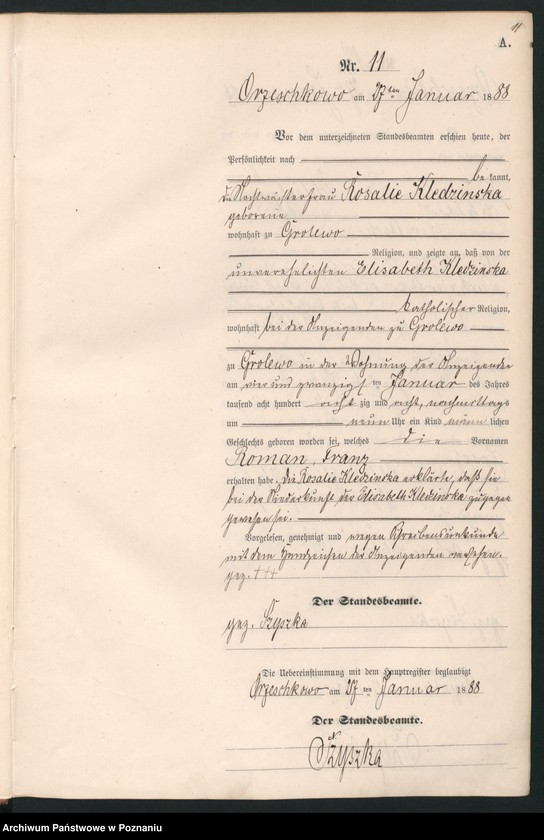 11
A.
Nr. 11
Orzeschkowo am 27ten Januar 1888
Vor dem unterzeichneten Standesbeamten erschien heute, der
Persönlichkeit nach
bekannt,
die Nachtwächterfrau Rosalie Kledzinska
geborene
wohnhaft zu Grolewo
Religion, und zeigte an, daß von der
unverehelichten Elisabeth Kledzinska
katholischer Religion,
wohnhaft bei der Anzeigenden zu Grolewo
zu Grolewo in der Wohnung der Anzeigenden
am vier und zwanzigsten Januar des Jahres
tausend acht hundert achtzig und acht, nachmittags
um neun Uhr ein Kind männlichen
Geschlechts geboren worden sei, welches die Vornamen
Roman, Franz
erhalten habe. Die Rosalie Kledzinska erklärte, daß sie
bei der Niederkunft der Elisabeth Kledzinska zugegen
gewesen sei.
Vorgelesen, genehmigt und wegen Schreibensunkunde
mit dem Handzeichen der Anzeigenden versehen.
gez. +++
Der Standesbeamte.
gez. Szyszka
Die Uebereinstimmung mit dem Hauptregister beglaubigt
Orzeschkowo am 27ten Januar 1888
Der Standesbeamte.
Szyszka
Archiwum Państwowe w Poznaniu